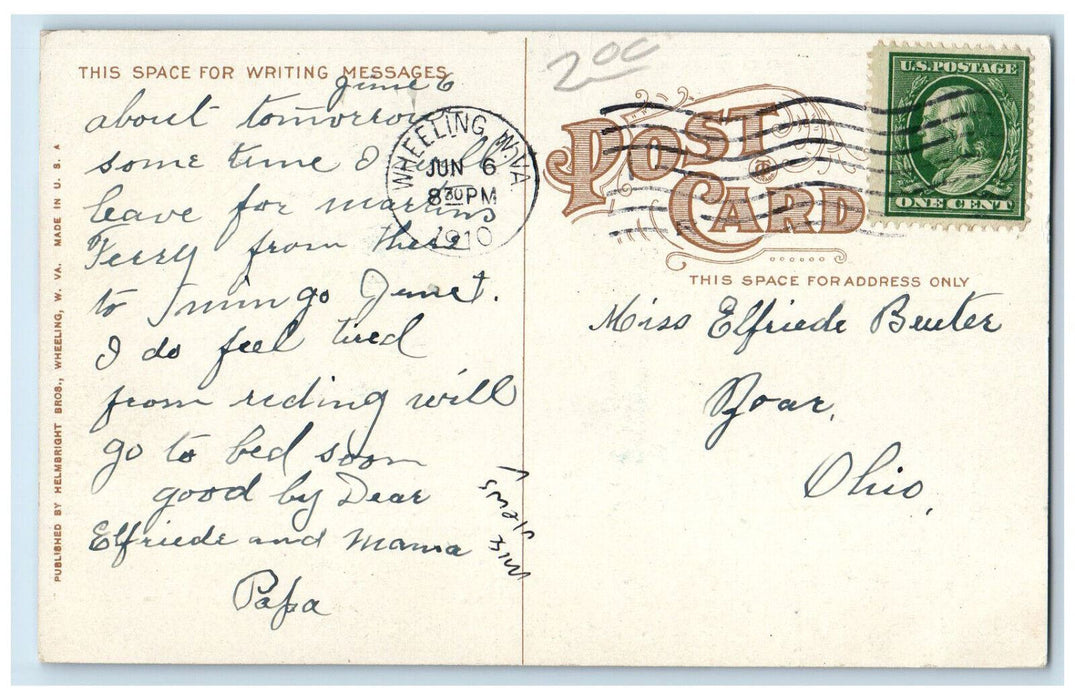 THIS SPACE FOR WRITING MESSAGES
June 6
about tomorrow
some time I will
leave for martins
Ferry from there
to Mingo Junct.
I do feel tired
from riding will
go to bed soon
good by Dear
Elfriede and Mama
Papa
PUBLISHED BY HELMBRIGHT BROS., WHEELING, W. VA. MADE IN U. S. A
WHEELING W.VA
JUN 6
8 30 PM
1910
200
POST
CARD
U.S. POSTAGE
ONE CENT
THIS SPACE FOR ADDRESS ONLY
Miss Elfriede Beuter
Zoar,
Ohio,
mix views